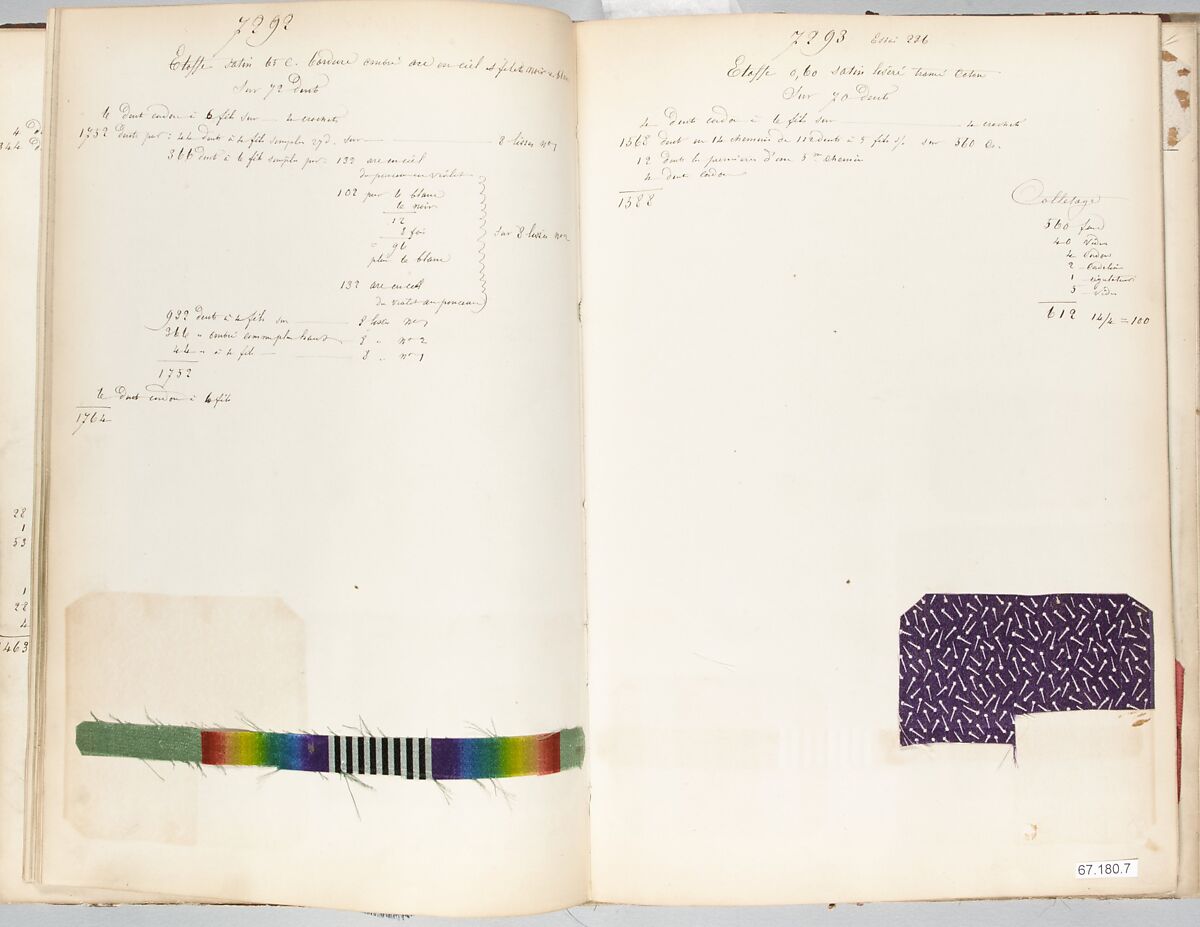 4 D
344 D
22
1
53
1
22
4
1463
7292
Etoffe satin 65 c. bordure ombré arc en ciel et filets noir et blanc
Sur 72 Dents
6 Dent cordon à 6 fils sur 4 crochets
1752 Dents par : 44 dents à 4 fils simples sur 8 lisses no 1
366 dent à 6 fil simples par 132 arc en ciel
du ponceau au violet
102 par 6 blanc
6 noir
12
8 fois
96
plus 6 blanc
sur 8 lisses no 2
132 arc en ciel
du violet au ponceau
932 dents à 4 fils sur 8 lisses no 1
366 " ombré comme plus haut 8 " no 2
44 " à 4 fils 8 " no 1
1752
6 Dent cordon à 6 fils
1764
7293 Essai 236
Etoffe 0,60 satin liseré tramé coton
Sur 70 dents
4 Dents cordon à 6 fils sur 4 crochets
1568 dent en 14 chemins de 112 dents à 5 fils sur 560 c.
12 dents les premières d'un 5me chemin
4 dent cordon
1588
Colletage
560 fond
40 vides
4 Cordons
2
1 régulateur
5 vides
612 14/4 = 100
67.180.7